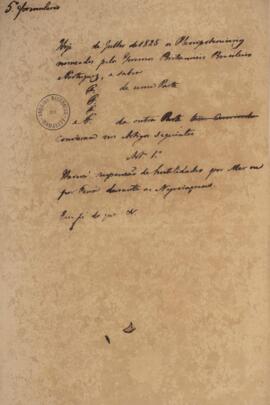 5º formulario
Hoje de Julho de 1825 os Plenipotenciarios
nomeados pelo Governo Britannico Brasileiro
e Portuguez, a saber
F.
F. de uma Parte
F.
e F. da outra Parte
convierão nos Artigos seguintes
Art. 1º
Haverá suspensão de hostilidades por Mar ou
por Terra durante as Negociaçoens
Em fé do que